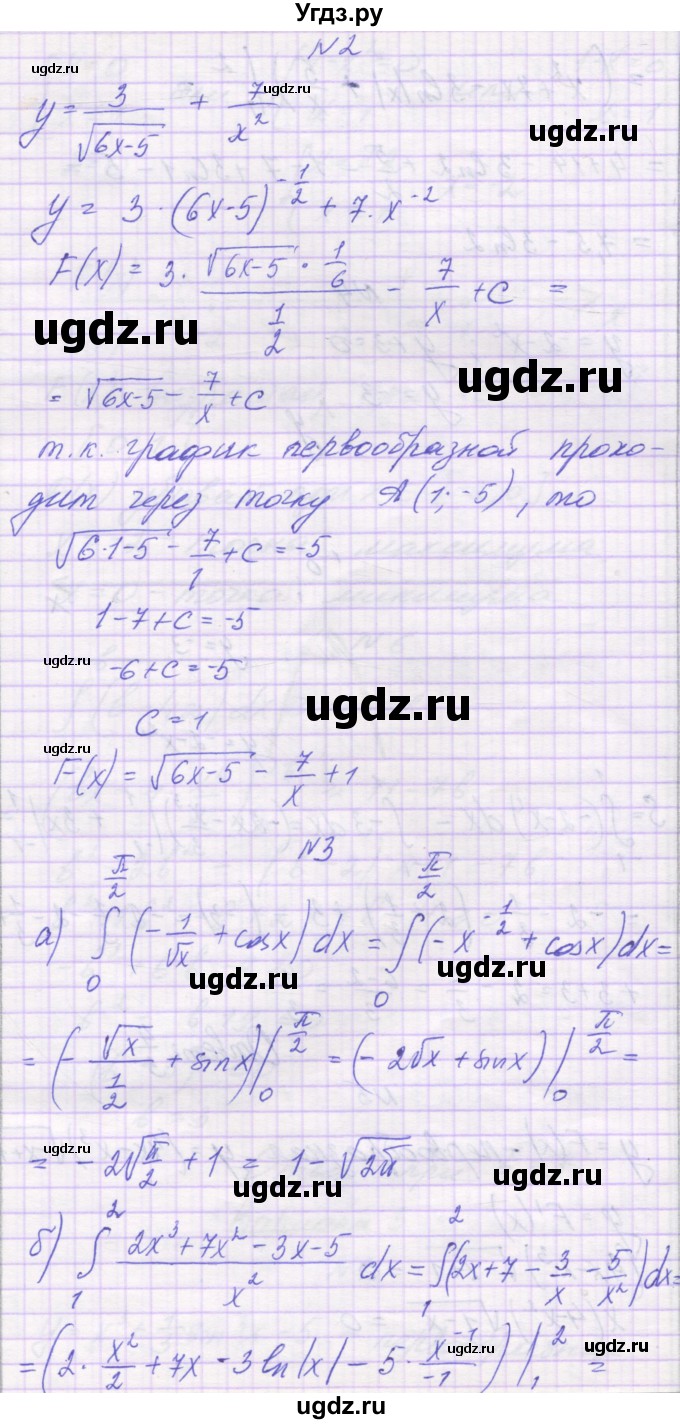 Угдз.ру
№2
ugdz.ru
y = 3/√(6x-5) + 7/x²
ugdz.ru
ugdz.ru
y = 3·(6x-5)^(-1/2) + 7·x^(-2)
F(x) = 3·(√(6x-5)·1/6)/(1/2) - 7/x + C =
ugdz.ru
ugdz.ru
= √(6x-5) - 7/x + C
ugdz.ru
т.к. график первообразной прохо-
дит через точку A(1;-5), то
√(6·1-5) - 7/1 + C = -5
ugdz.ru
1-7+C=-5
-6+C=-5
ugdz.ru
ugdz.ru
C=1
ugdz.ru
F(x) = √(6x-5) - 7/x + 1
№3
а) ∫₀^(π/2) (-1/√x + cosx) dx = ∫₀^(π/2) (-x^(-1/2) + cosx) dx =
ugdz.ru
ugdz.ru
= (-√x/(1/2) + sinx)|₀^(π/2) = (-2√x + sinx)|₀^(π/2) =
ugdz.ru
= -2√(π/2) + 1 = 1 - √(2π)
ugdz.ru
ugdz.ru
ugdz.ru
б) ∫₁² (2x³+7x²-3x-5)/x² dx = ∫₁² (2x+7 - 3/x - 5/x²) dx =
ugdz.ru
= (2·x²/2 + 7x - 3ln|x| - 5·x^(-1)/(-1))|₁² =
ugdz.ru
ugdz.ru
ugdz.ru